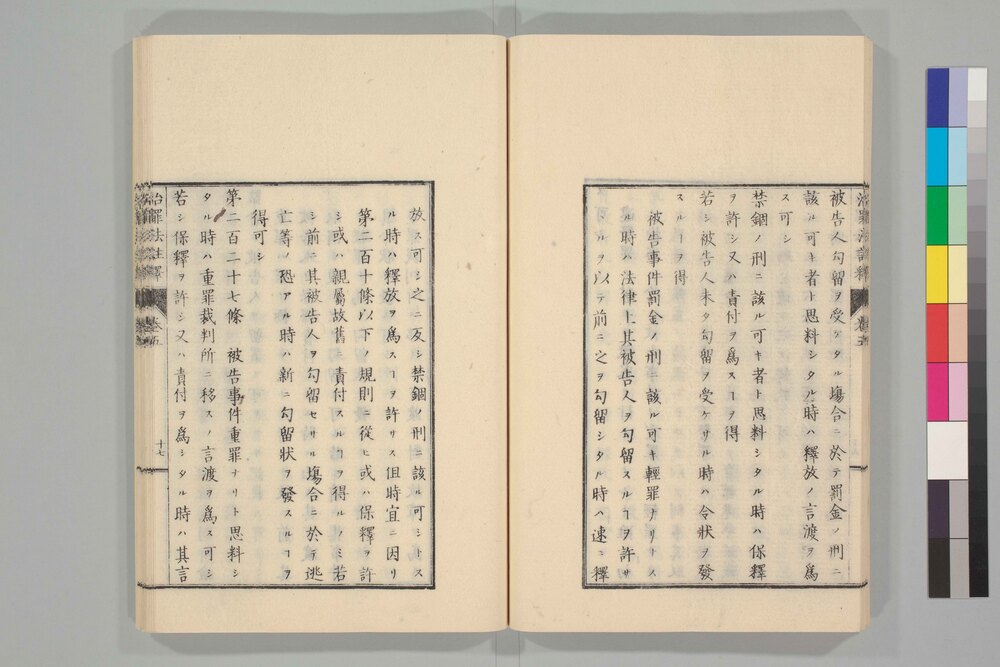 被告人勾留ヲ受ケタル塲合ニ於テ罰金ノ刑ニ
該ル可キ者ト思料シタル時ハ釋放ノ言渡ヲ爲
ス可シ
禁錮ノ刑ニ該ル可キ者ト思料シタル時ハ保釋
ヲ許シ又ハ責付ヲ爲スヿヲ得
若シ被告人未タ勾留ヲ受ケサル時ハ令狀ヲ發
スルヿヲ得
被告事件罰金ノ刑ニ該ル可キ輕罪ナリトス
ル時ハ法律上其被告人ヲ勾留スルヿヲ許サ
ヽルヲ以テ前ニ之ヲ勾留シタル時ハ速ニ釋
放ス可シ之ニ反シ禁錮ノ刑ニ該ル可シトス
ル時ハ釋放ヲ爲スヿヲ許サス但時宜ニ因リ
第二百十條以下ノ規則ニ從ヒ或ハ保釋ヲ許
シ或ハ親屬故舊ニ責付スルヿヲ得ルノミ若
シ前ニ其被告人ヲ勾留セサル塲合ニ於テ逃
亡等ノ恐アル時ハ新ニ勾留狀ヲ發スルヿヲ
得可シ
第二百二十七條 被告事件重罪ナリト思料シ
タル時ハ重罪裁判所ニ移スノ言渡ヲ爲ス可シ
若シ保釋ヲ許シ又ハ責付ヲ爲シタル時ハ其言
治罪法註釋 卷五
十七